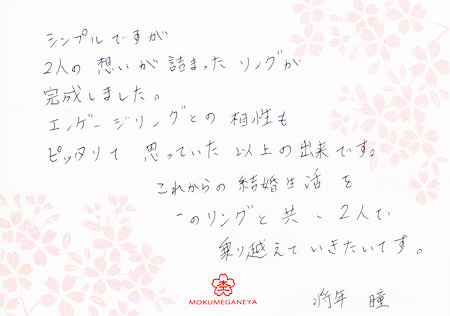 シンプルですが
2人の想いが詰まったリングが
完成しました。
エンゲージリングとの相性も
ピッタリで思っていた以上の出来です。
これからの結婚生活を
このリングと共に2人で
乗り越えていきたいです。
MOKUMEGANEYA
将年 瞳